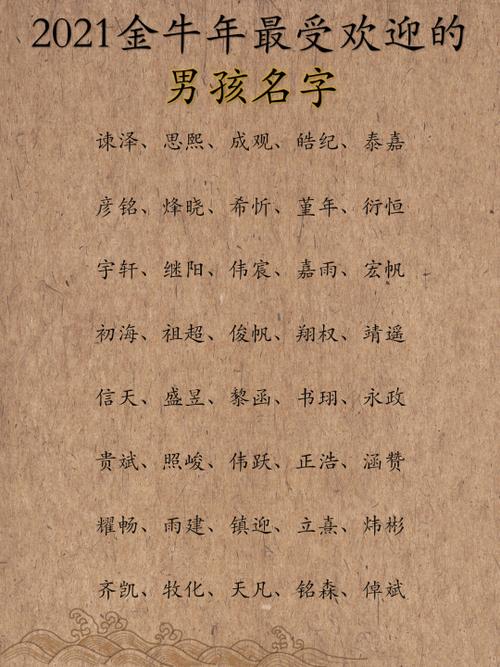 2021金牛年最受欢迎的
男孩名字
谏泽、思熙、成观、皓纪、泰嘉
彦铭、烽晓、希忻、堇年、衍恒
宇轩、继阳、伟宸、嘉雨、宏帆
初海、祖超、俊帆、翔权、靖遥
信天、盛昱、黎函、书珝、永政
贵斌、照峻、伟跃、正浩、涵赞
耀畅、雨建、镇迎、立熹、炜彬
齐凯、牧化、天凡、铭森、倬斌